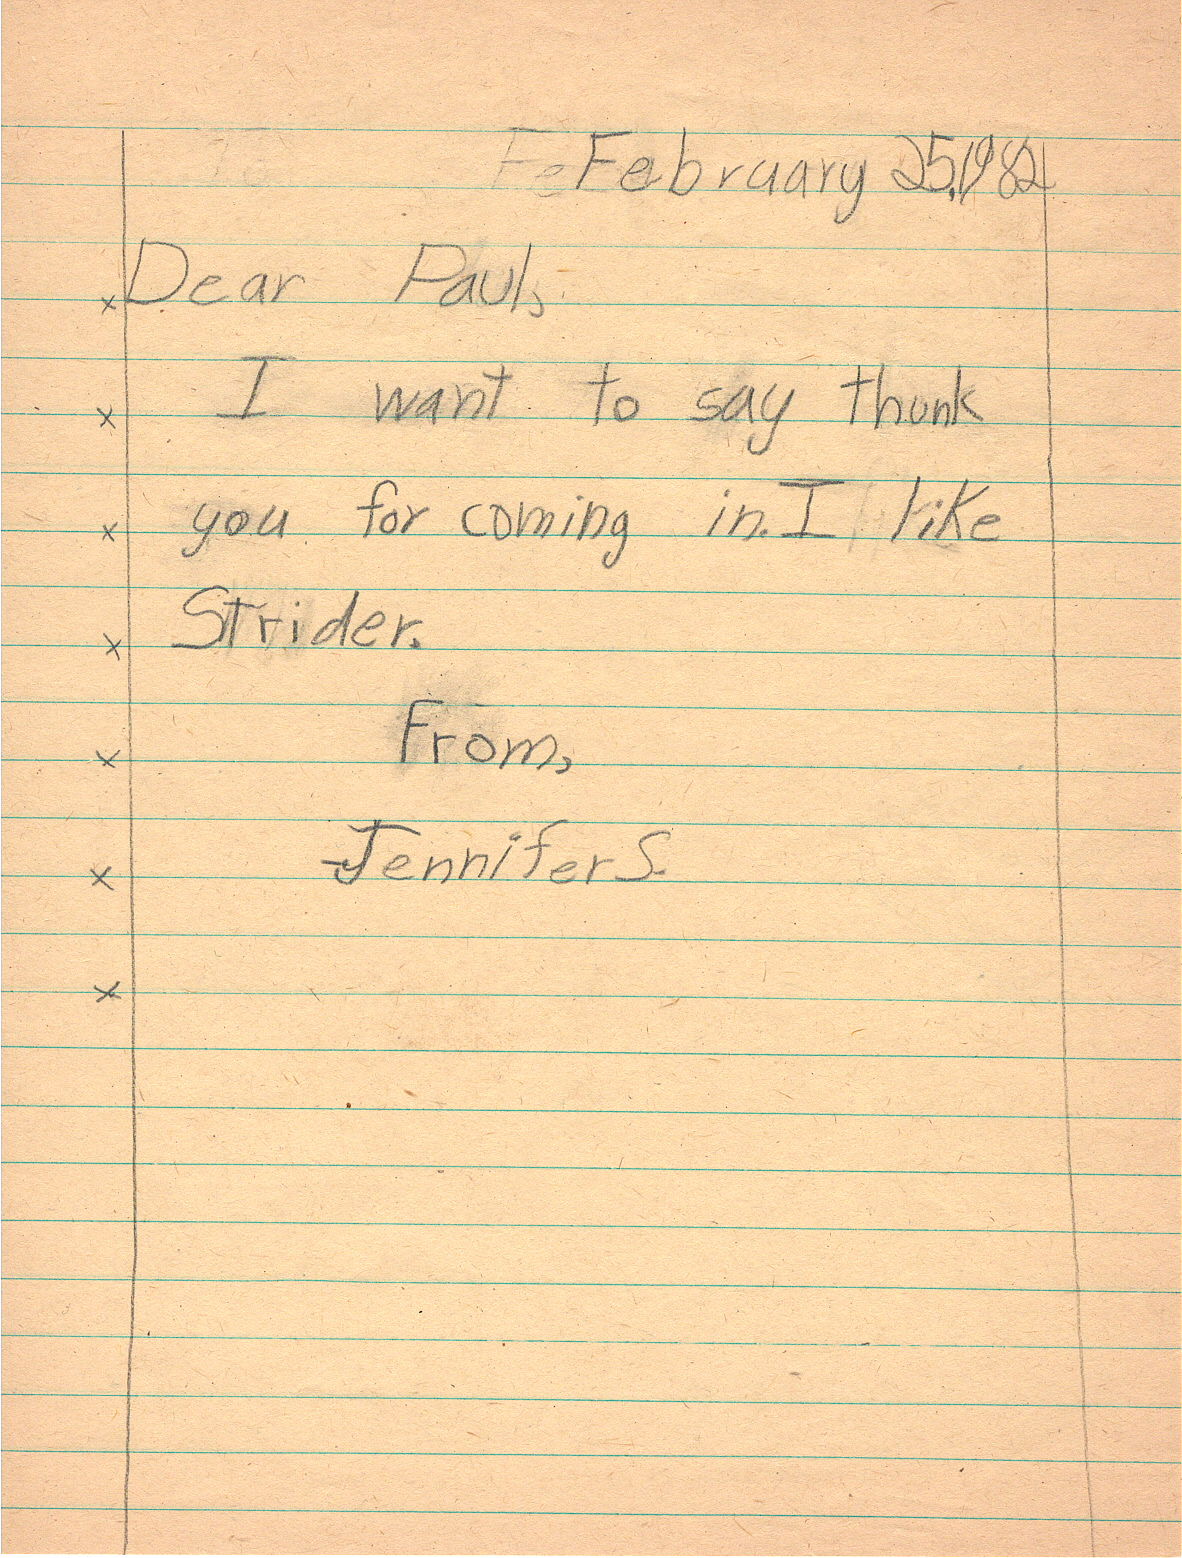 February 25, 1982
Dear Paul,
I want to say thank
you for coming in. I like
Strider.
From,
Jennifer S.